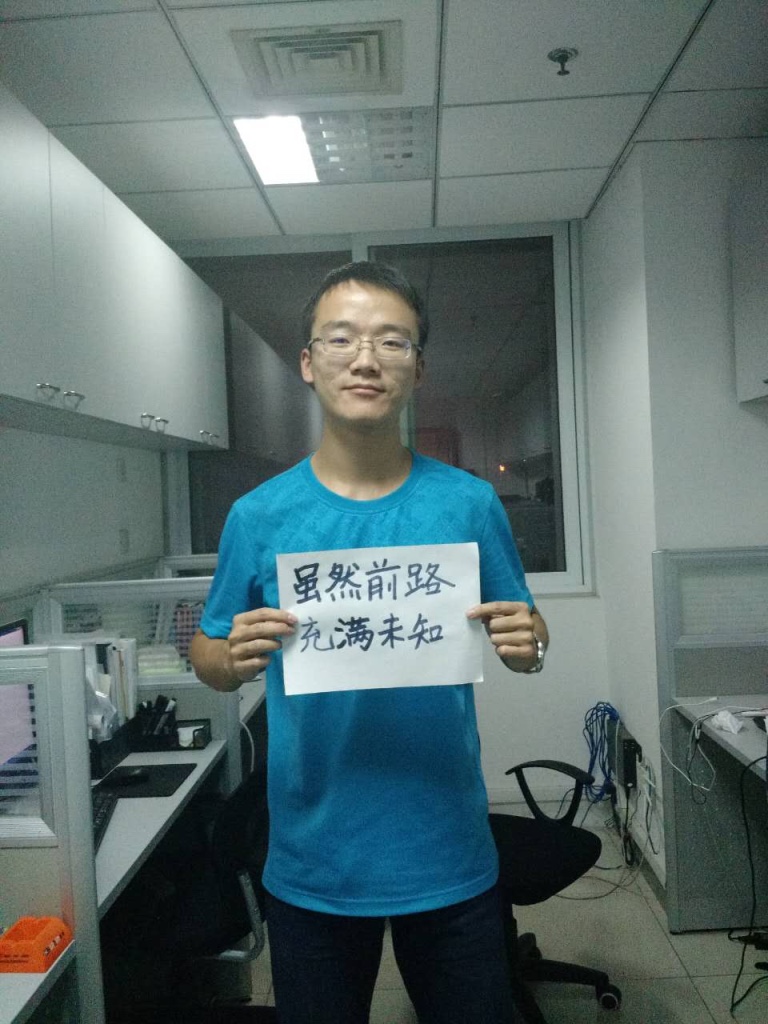 虽然前路
充满未知